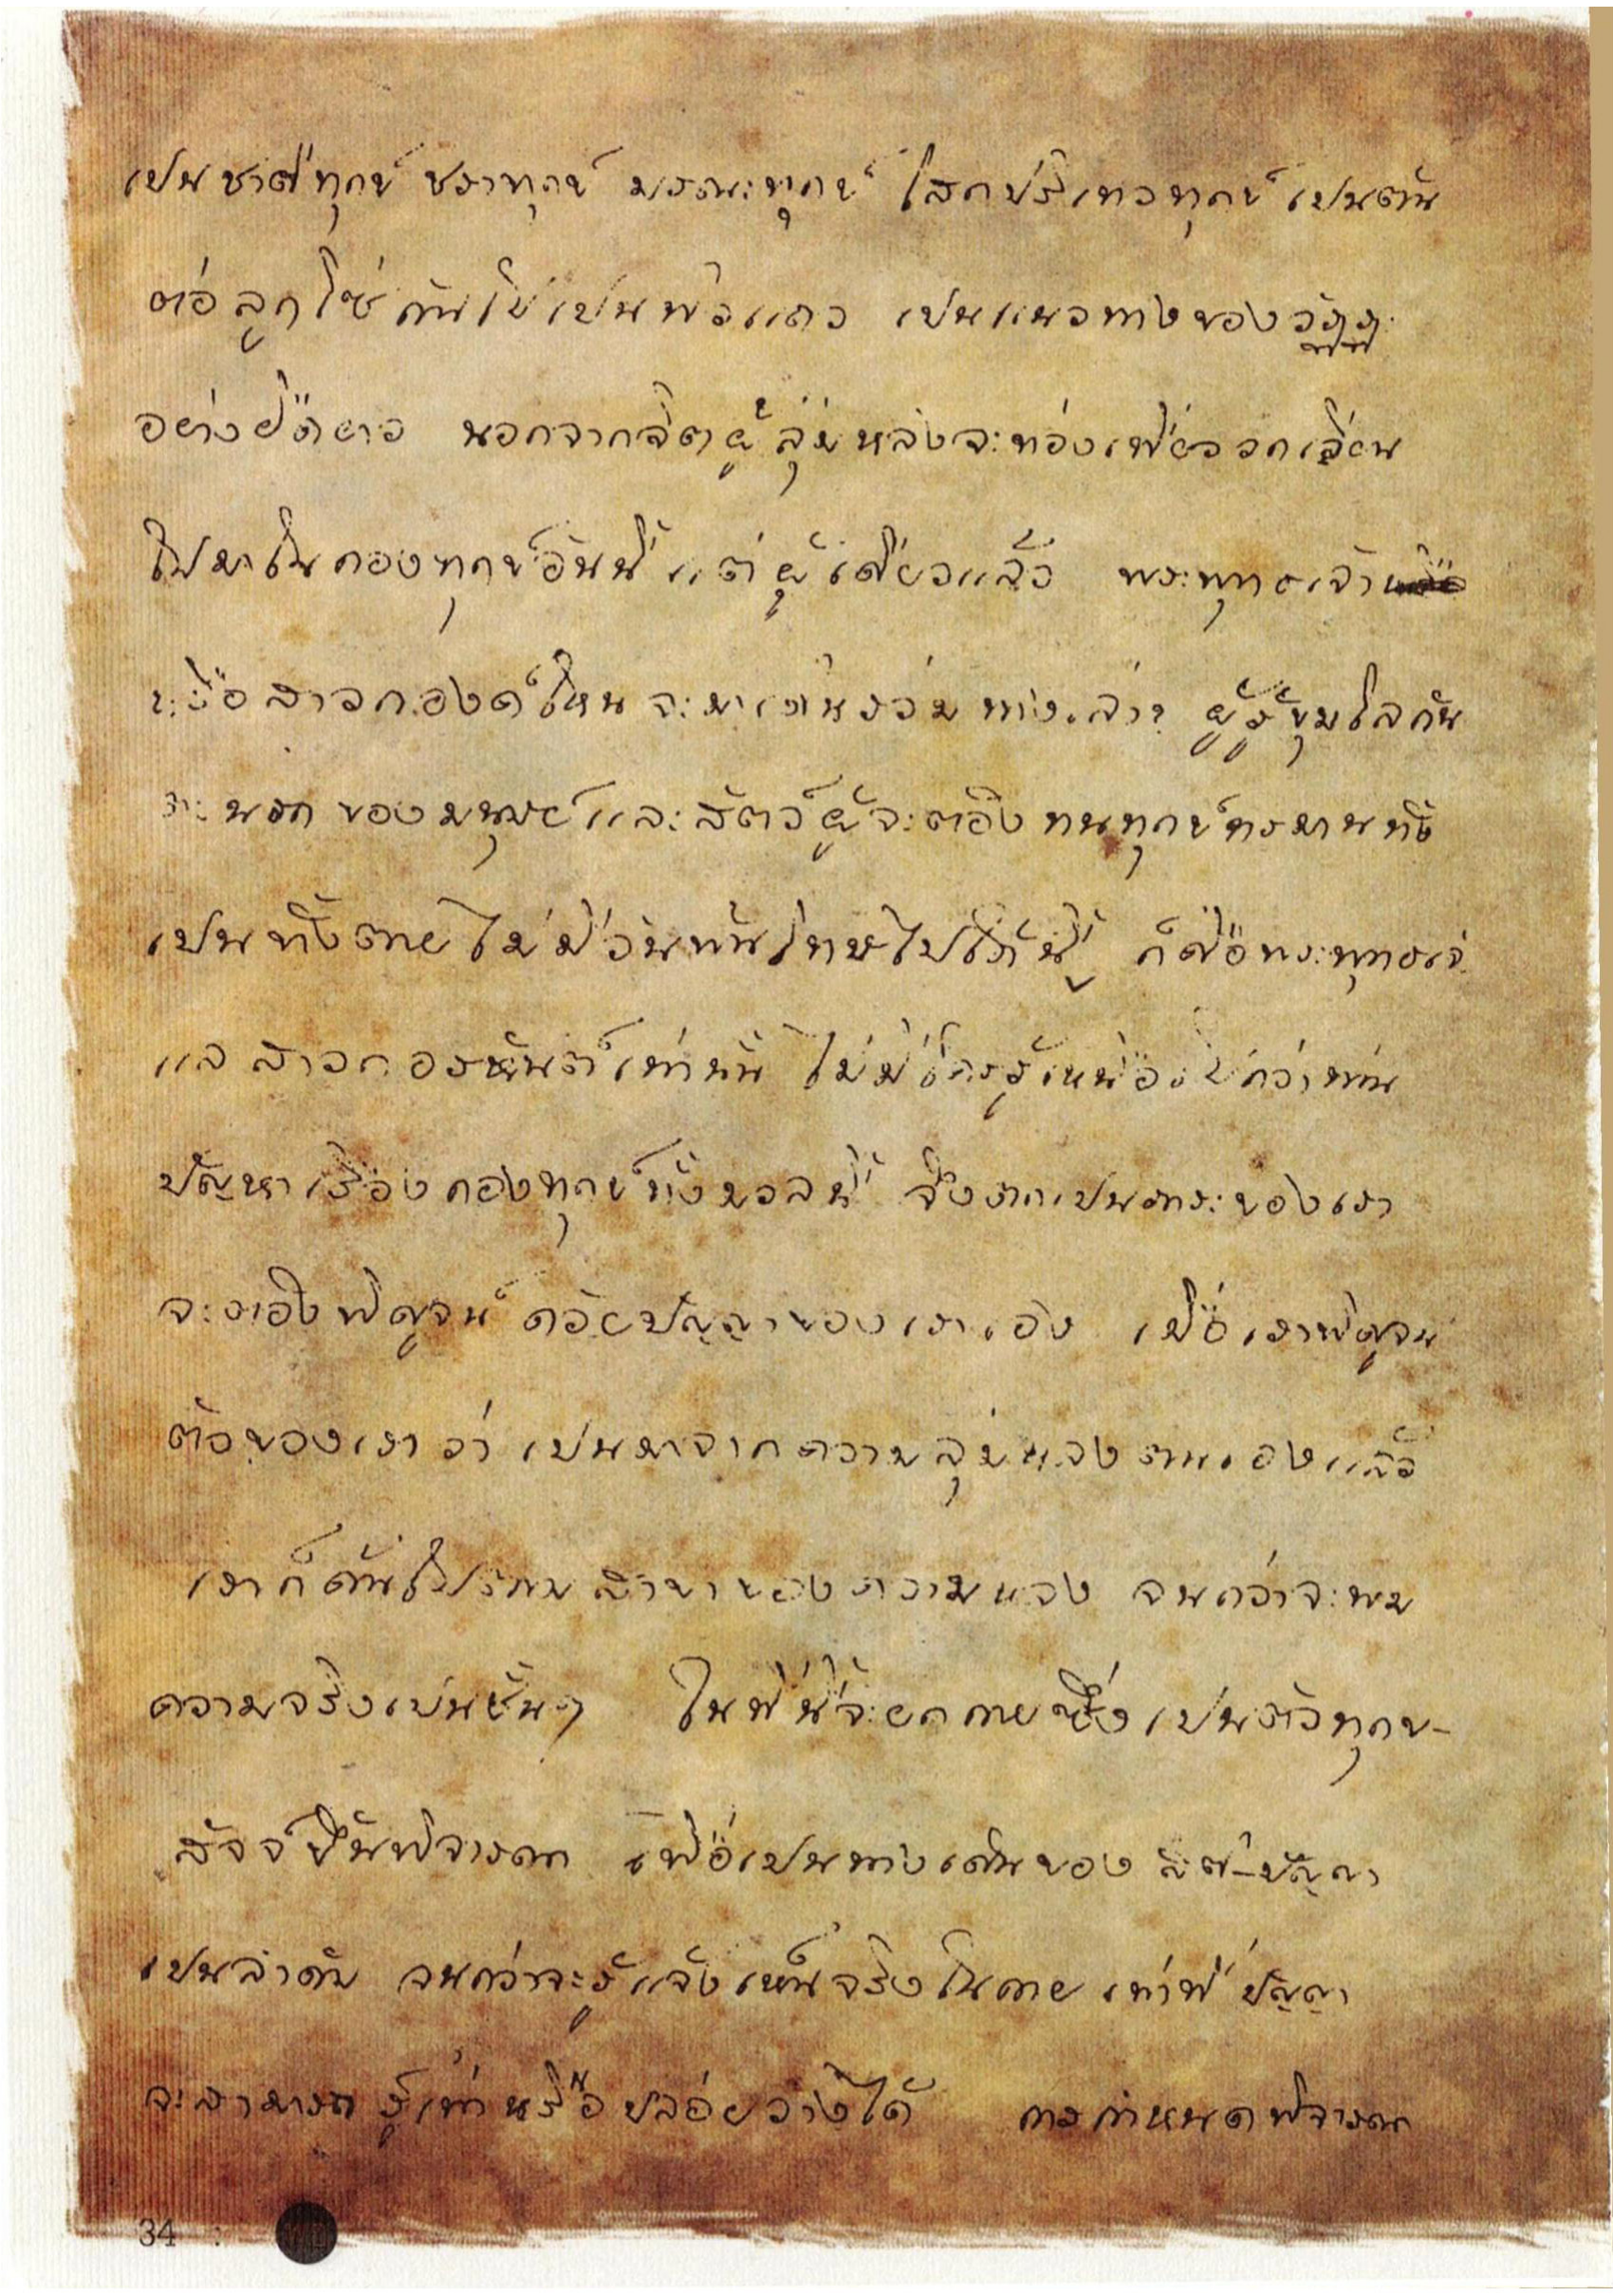 เป็นชาติทุกข์ ชราทุกข์ มรณะทุกข์ โสกปริเทวทุกข์ เป็นต้น
ต่อลูกโซ่กันไปเป็นพืดแถว เป็นแนวทางของวัฏฏะ
อย่างยืดยาว นอกจากจิตผู้ลุ่มหลงจะท่องเที่ยววกเวียน
ไปมาในกองทุกข์อันนี้แต่ผู้เดียวแล้ว พระพุทธเจ้า
หรือสาวกองค์ไหนจะมาเดินร่วมทางเล่า ผู้รู้ขุมโลกัน
นรก ของมนุษย์และสัตว์ผู้จะต้องทนทุกข์ทรมานทั้ง
เป็นทั้งตายไม่มีวันพ้นโทษไปได้นี้ ก็คือพระพุทธเจ้า
แลสาวกอรหันต์เท่านั้น ไม่มีใครรู้เหนือไปกว่าท่าน
ปัญหาเรื่องกองทุกข์ทั้งมวลนี้ จึงตกเป็นภาระของเรา
จะต้องพิสูจน์ด้วยปัญญาของเราเอง เมื่อเราพิสูจน์
ตัวของเราว่า เป็นมาจากความลุ่มหลงตนเองแล้ว
เราก็ค้นไปตามสาขาของความหลง จนกว่าจะพบ
ความจริงเป็นชั้นๆ ในที่นี้จะยกกายซึ่งเป็นตัวทุกข-
สัจจ์ขึ้นพิจารณา เพื่อเป็นทางเดินของ สติ-ปัญญา
เป็นลำดับ จนกว่าจะรู้แจ้งเห็นจริงในกาย เท่าที่ปัญญา
จะสามารถ รู้เท่าหรือปล่อยวางได้ การกำหนดพิจารณา
34 :